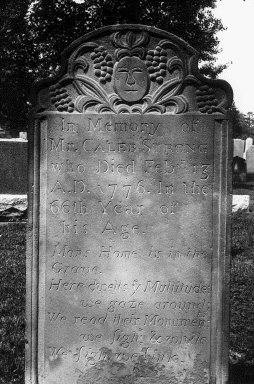 In Memory of
Mr. CALEB STRONG
who Died Feb 13
A.D. 1776. In the
66th Year of
his Age.
Mans Home is in the
Grave.
Here dwells y Multitude
we gaze around
We read their Monument
we sigh & while
We sigh we sink